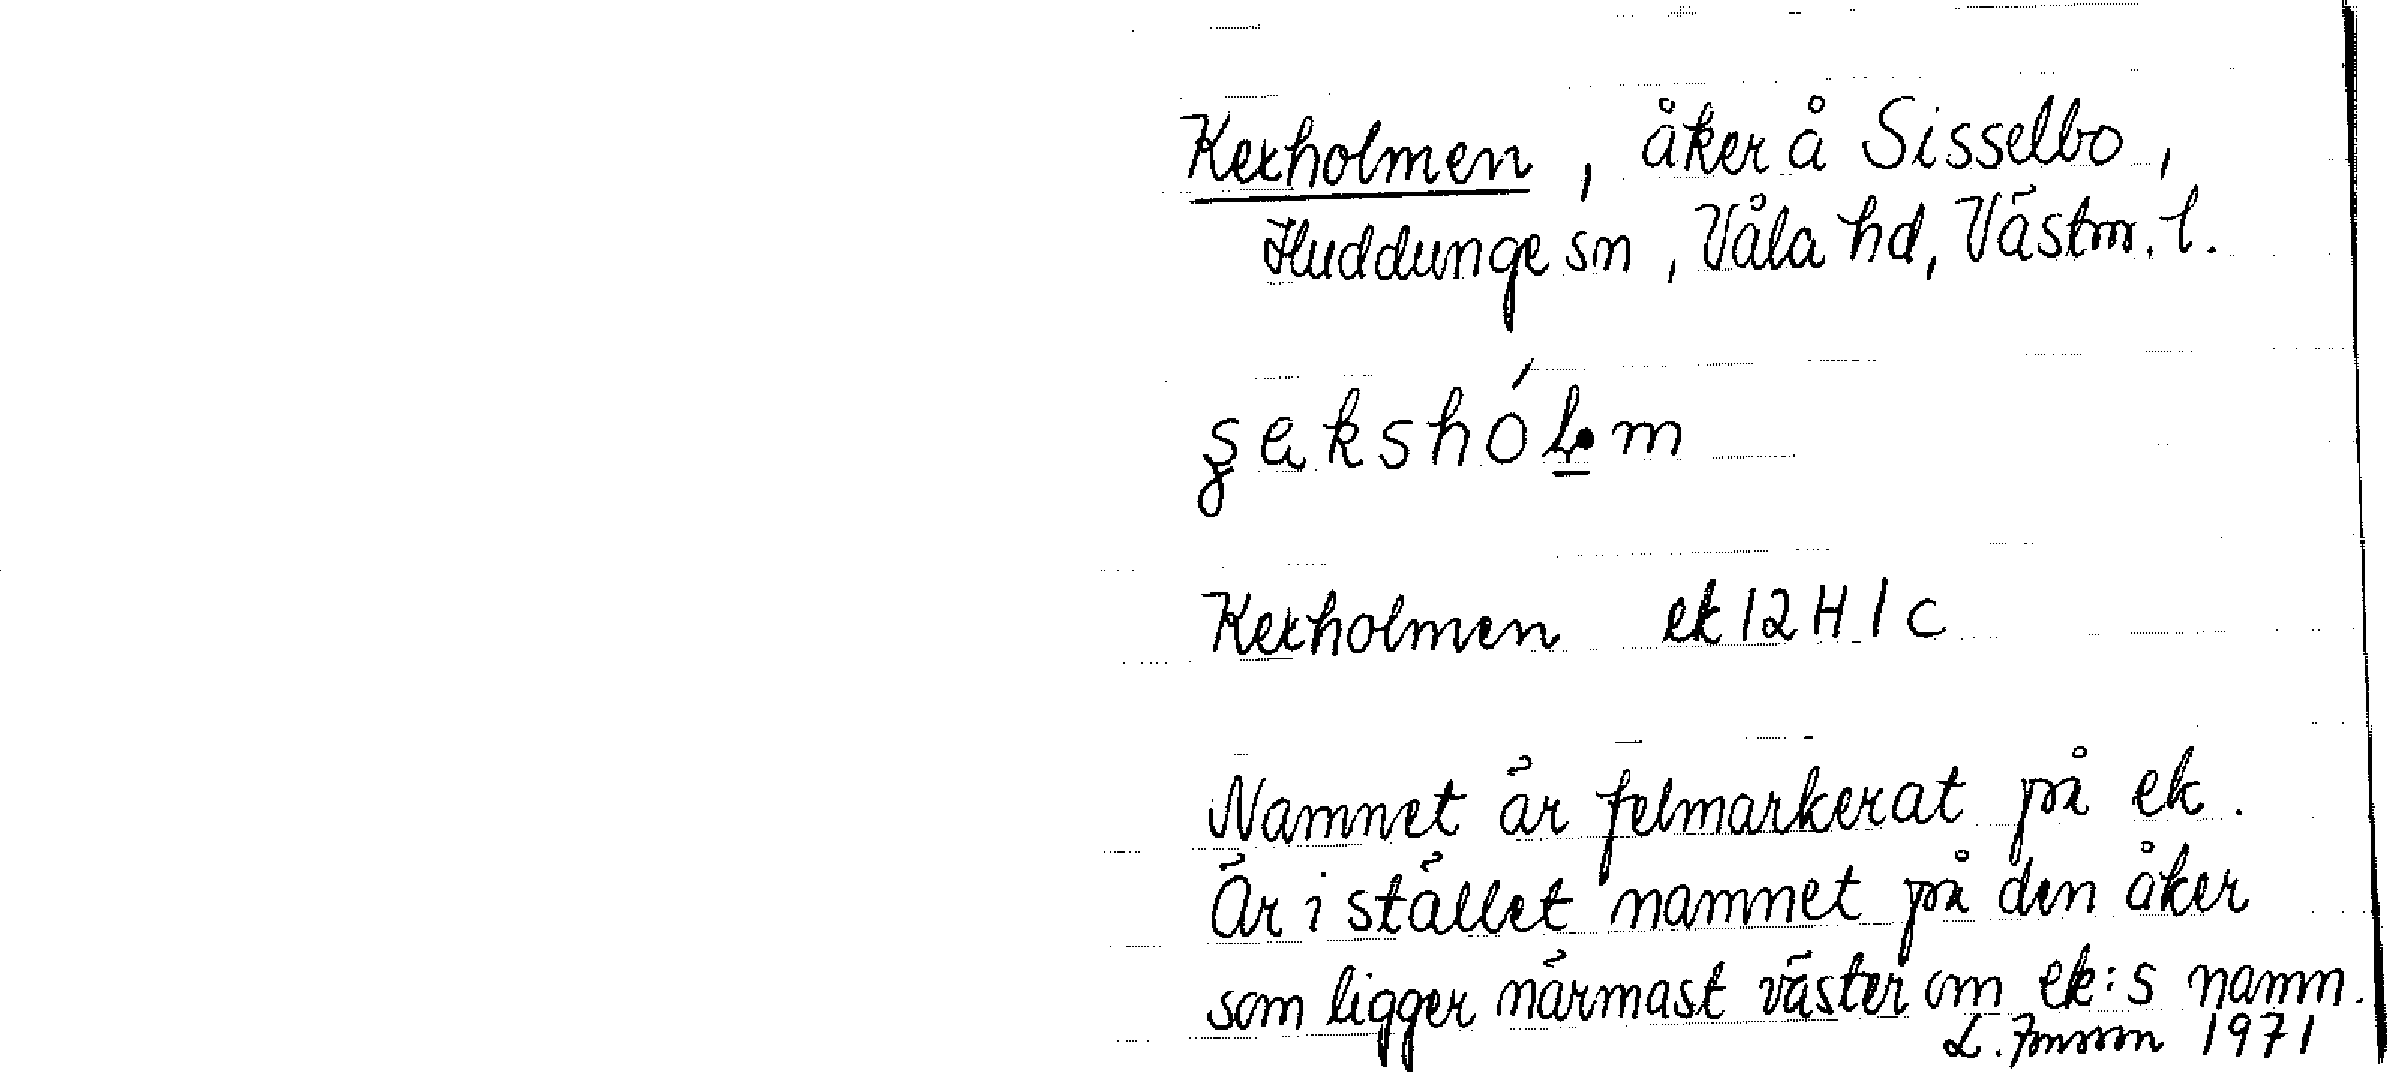 Kexholmen, åker å Sisselbo,
Huddunge sn, Våla hd, Västm. l.
Kexholmen ek 12 H 1 c
Namnet är felmarkerat på ek.
Är i stället namnet på den åker
som ligger närmast väster om ek:s namn.
L. Jonsson 1971